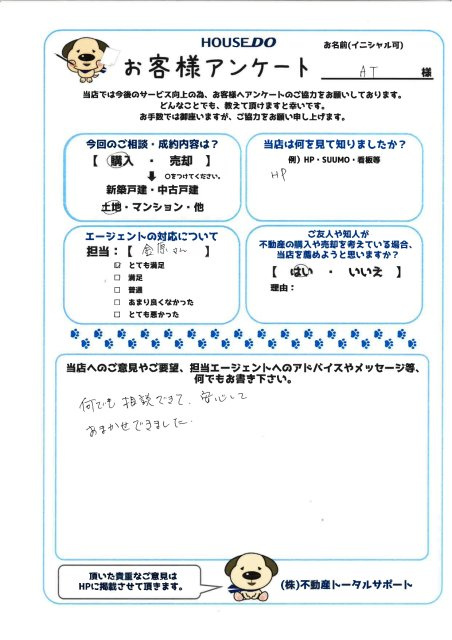 HOUSEDO
お名前(イニシャル可)
お客様アンケート
AT 様
当店では今後のサービス向上の為、お客様へアンケートのご協力をお願いしております。
どんなことでも、教えて頂けますと幸いです。
お手数では御座いますが、ご協力をお願い申し上げます。
今回のご相談・成約内容は?
【 購入 ・ 売却 】
↓ ○をつけてください。
新築戸建・中古戸建
土地・マンション・他
当店は何を見て知りましたか?
例) HP・SUUMO・看板等
HP
エージェントの対応について
担当:【 金原さん 】
☑ とても満足
□ 満足
□ 普通
□ あまり良くなかった
□ とても悪かった
ご友人や知人が
不動産の購入や売却を考えている場合、
当店を薦めようと思いますか?
【 はい ・ いいえ 】
理由:
当店へのご意見やご要望、担当エージェントへのアドバイスやメッセージ等、
何でもお書き下さい。
何でも相談できて、安心して
おまかせできました。
頂いた貴重なご意見は
HPに掲載させて頂きます。
(株)不動産トータルサポート